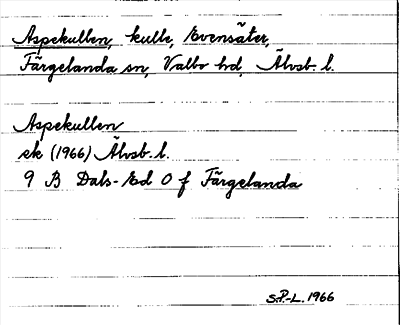 Aspekullen, kulle, Evensäter,
Färgelanda sn, Valbo hd, Älvsb. l.
Aspekullen
ek (1966) Älvsb. l.
9 B Dals-Ed O f Färgelanda
S.P.-L. 1966